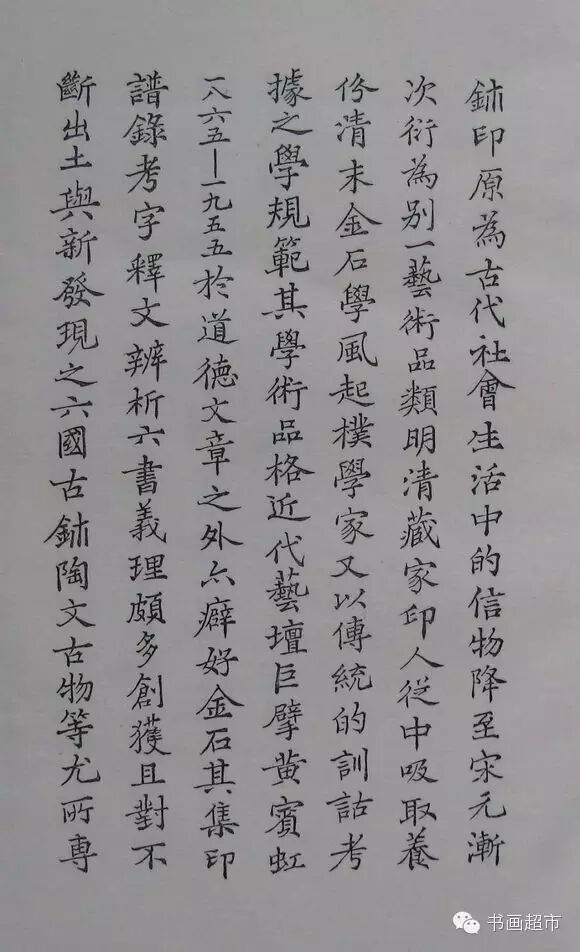 鉨印原為古代社會生活中的信物降至宋元漸
次衍為别一藝術品類明清藏家印人從中吸取養
份清末金石學風起樸學家又以傳統的訓詁考
據之學規範其學術品格近代藝壇巨擘黄賓虹
一八六五—一九五五於道德文章之外亦癖好金石其集印
譜錄考字釋文辨析六書義理頗多創獲且對不
斷出土與新發現之六國古鉨陶文古物等尤所專
书画超市